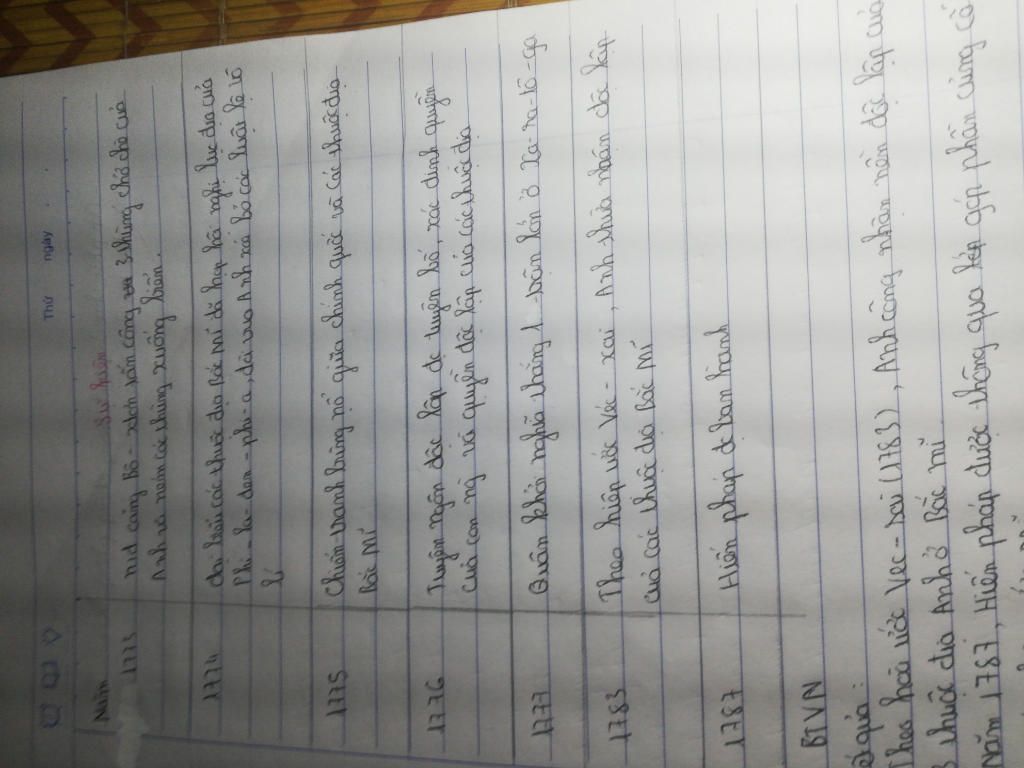 Thứ ngày
Năm Sự kiện
1773 nd cảng Bô-xtơn tấn công 3 thùng chở chè của
Anh và ném các thùng xuống biển.
1774 đại biểu các thuộc địa Bắc Mĩ đã họp hội nghị lục địa của
Phi-la-đen-phi-a, đòi vua Anh xoá bỏ các luật lệ vô
lí
1775 Chiến tranh bùng nổ giữa chính quốc và các thuộc địa
Bắc Mĩ
1776 Tuyên ngôn độc lập đc tuyên bố, xác định quyền
của con ng và quyền độc lập của các thuộc địa
1777 Quân khởi nghĩa thắng 1 trận lớn ở Xa-ra-tô-ga
1783 Theo hiệp ước Véc-xai, Anh thừa nhận độc lập
của các thuộc địa Bắc Mĩ
1787 Hiến pháp đc ban hành
BTVN
quả:
Theo hoà ước Vec-xai (1783), Anh công nhận nền độc lập của
3 thuộc địa Anh ở Bắc Mĩ.
năm 1787, Hiến pháp được thông qua góp phần củng cố